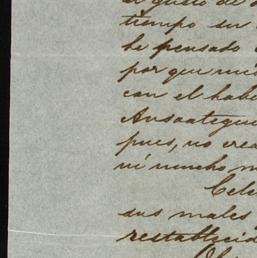 el gusto de
tiempo en
he pensado
por que mis
con el habe
Ansoategui
pues, no crea
ni mucho m
Cele
sus males
restablecid